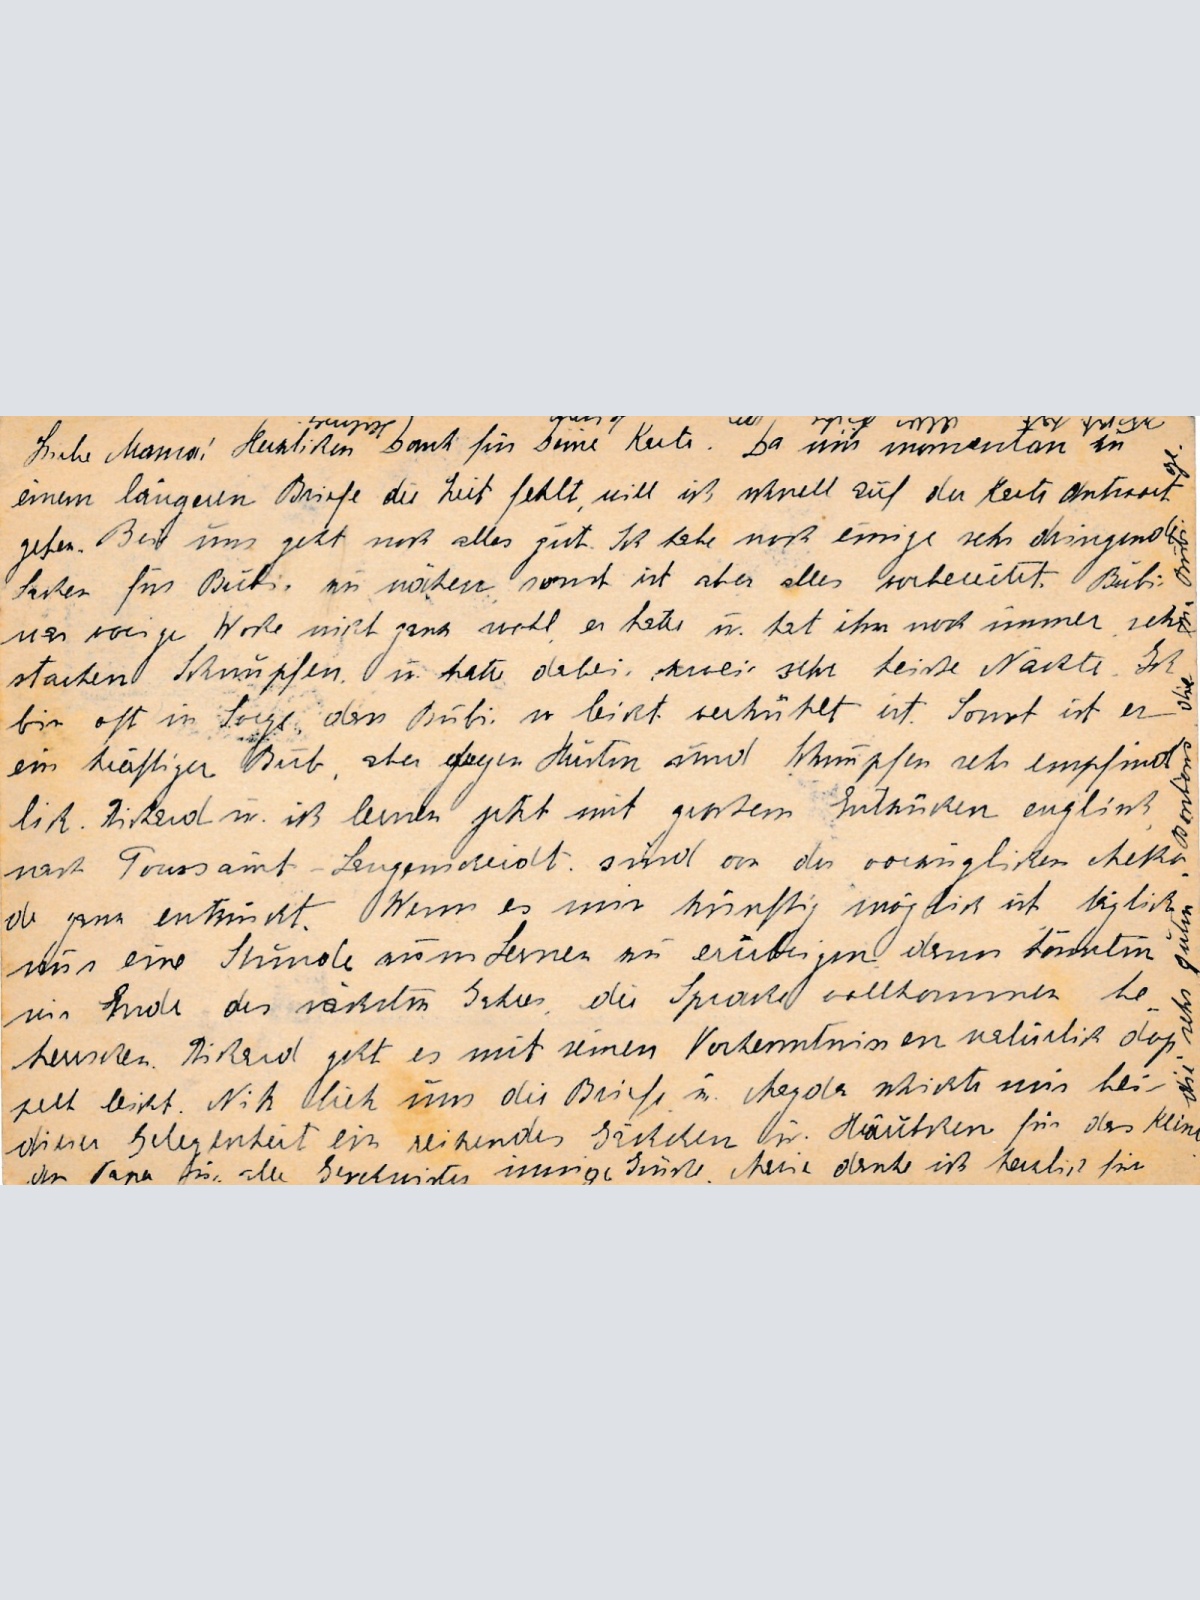 Liebe Mama! Herzlichen Dank für Deine Karte. Da uns momentan zu
einem längeren Briefe die Zeit fehlt, will ich schnell auf der Karte Antwort
geben. Bei uns geht noch alles gut. Ich habe noch einige sehr dringende
Sachen für Bubi zu nähen, sonst ist aber alles vorbereitet. Bubi
war vorige Woche nicht ganz wohl, er hatte u. hat ihn noch immer, sehr
starken Schnupfen u. hatte dabei zwei sehr heisse Nächte. Ich
bin oft in Sorge, dass Bubi so leicht verkühlt ist. Sonst ist er
ein kräftiger Bub, aber gegen Husten und Schnupfen sehr empfind
lich. Richard u. ich lernen jetzt mit grossem Entzücken englisch
nach Toussaint-Langenscheidt, sind von der vorzüglichen Metho-
de ganz entzückt. Wenn es mir künftig möglich ist täglich
nur eine Stunde zum Lernen zu erübrigen, dann könnten
wir Ende des nächsten Jahres die Sprache vollkommen be
herrschen. Richard geht es mit seinen Vorkenntnissen natürlich dop
pelt leicht. Nik lieh uns die Briefe u. Magda schickte mir bei
dieser Gelegenheit ein reizendes Jäckchen u. Häubchen für das Kleine
dem Papa u. alle Geschwister innige Grüsse. Maria danke ich herzlich für
die sehr guten Bonbons die